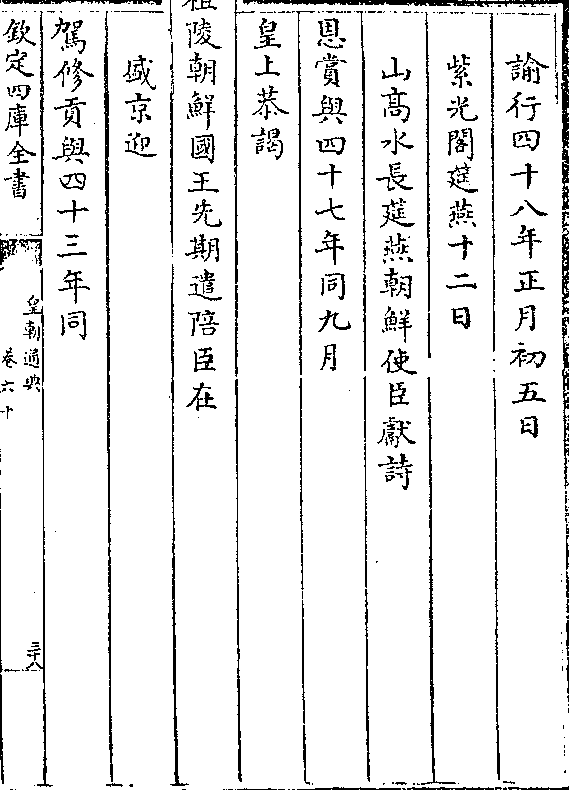 諭行四十八年正月初五日
紫光閣筵燕十二日
山髙水長筵燕朝鮮使臣獻詩
恩賞與四十七年同九月
皇上恭謁
祖陵朝鮮國王先期遣陪臣在
盛京迎
駕修貢與四十三年同
欽定四庫全書
皇朝通典
卷六十
三十八